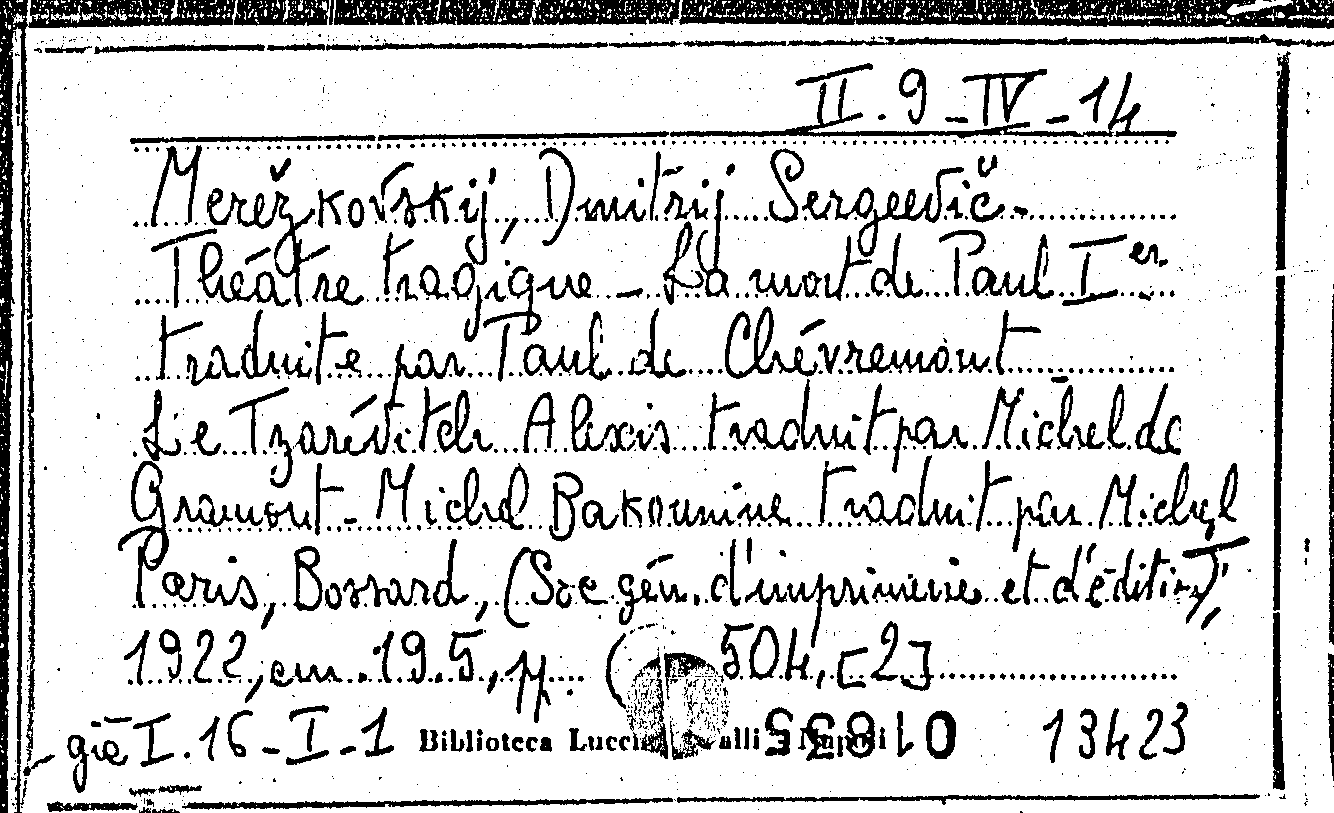 II. 9 - IV - 14
Merežkovskij, Dmitrij Sergeevič.
Théâtre tragique - La mort de Paul Ier
traduite par Paul de Chévremont
Le Tzarévitch Alexis traduit par Michel de
Gramont - Michel Bakounine traduit par Michel
Paris, Bossard, (Soc gén. d'imprimerie et d'édition),
1922, cm. 19.5, pp. ( 504, [2]
già I. 16 - I - 1 Biblioteca 01835 13423